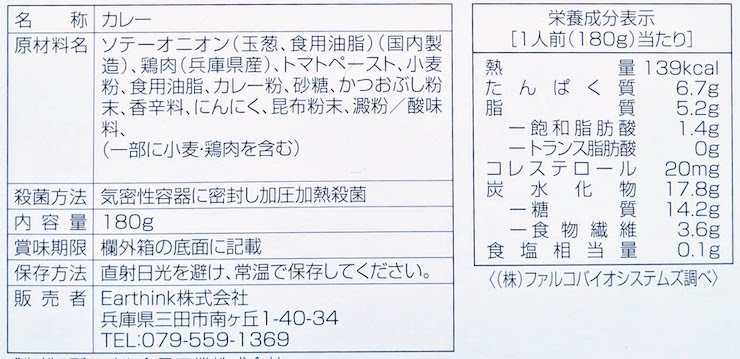 名称 カレー
原材料名 ソテーオニオン(玉葱、食用油脂)(国内製
造)、鶏肉(兵庫県産)、トマトペースト、小麦
粉、食用油脂、カレー粉、砂糖、かつおぶし粉
末、香辛料、にんにく、昆布粉末、澱粉／酸味
料、
(一部に小麦・鶏肉を含む)
殺菌方法 気密性容器に密封し加圧加熱殺菌
内容量 180g
賞味期限 欄外箱の底面に記載
保存方法 直射日光を避け、常温で保存してください。
販売者 Earthink株式会社
兵庫県三田市南ヶ丘1-40-34
TEL:079-559-1369
栄養成分表示
[1人前(180g)当たり]
熱量 139kcal
たんぱく質 6.7g
脂質 5.2g
－飽和脂肪酸 1.4g
－トランス脂肪酸 0g
コレステロール 20mg
炭水化物 17.8g
－糖質 14.2g
－食物繊維 3.6g
食塩相当量 0.1g
〈(株)ファルコバイオシステムズ調べ〉